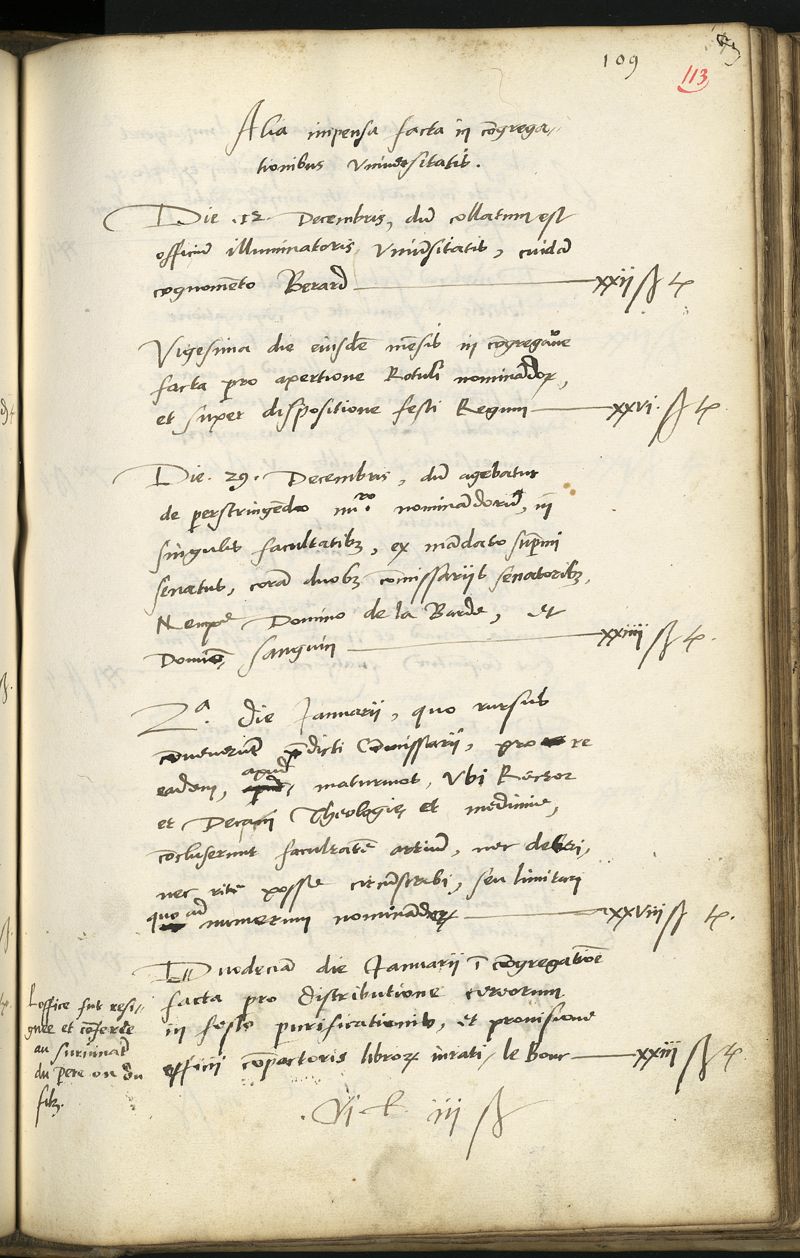 109
113
Alia impensa facta in cōgrega-
tionibus Vniuersitatis.
Die .12. Decembris, dū collatum est
officiū illuminatoris Vniuersitatis, cuidā
cognomēto Berard xxii ß tz
Vigesima die eiusdē mēsis in cōgregatiōe
facta pro apertione Rotuli nominādorꝝ,
et super dispositione festi Regum xxvi ß tz
Die .29. Decembris, dū agebatur
de perstringēdo nūro nominandorū, in
singulis facultatibꝫ, ex mādato supremi
senatus, corā duobꝫ cōmissariis senatoribꝫ,
Nempe Domino de la Barde, et
Domino Sanguin xxiiii ß tz.
2ª. die Januarii, quo rursus
cōuenerūt p̄dicti Cōmissarii, pro re
eadem, apud maturinos, Vbi Rector
et Decani Theologię et medicinę,
cōcluserunt facultatē artiū, nec debere,
nec ritē posse circūscribi, seu limitari
quo ad numerum nominādorꝝ xxviii ß tz.
Duodecīā die Januarii ī cōgregatiōe
facta pro distributione cereorum
in festo purificationis, et prouisione
officii cōpactoris librorꝝ iurati, le Bouc xxiii ß tz
L'office fut resi-
gnee et cōferée
au suruiuāt
du pere ou du
filz.
.vi ł iii ß